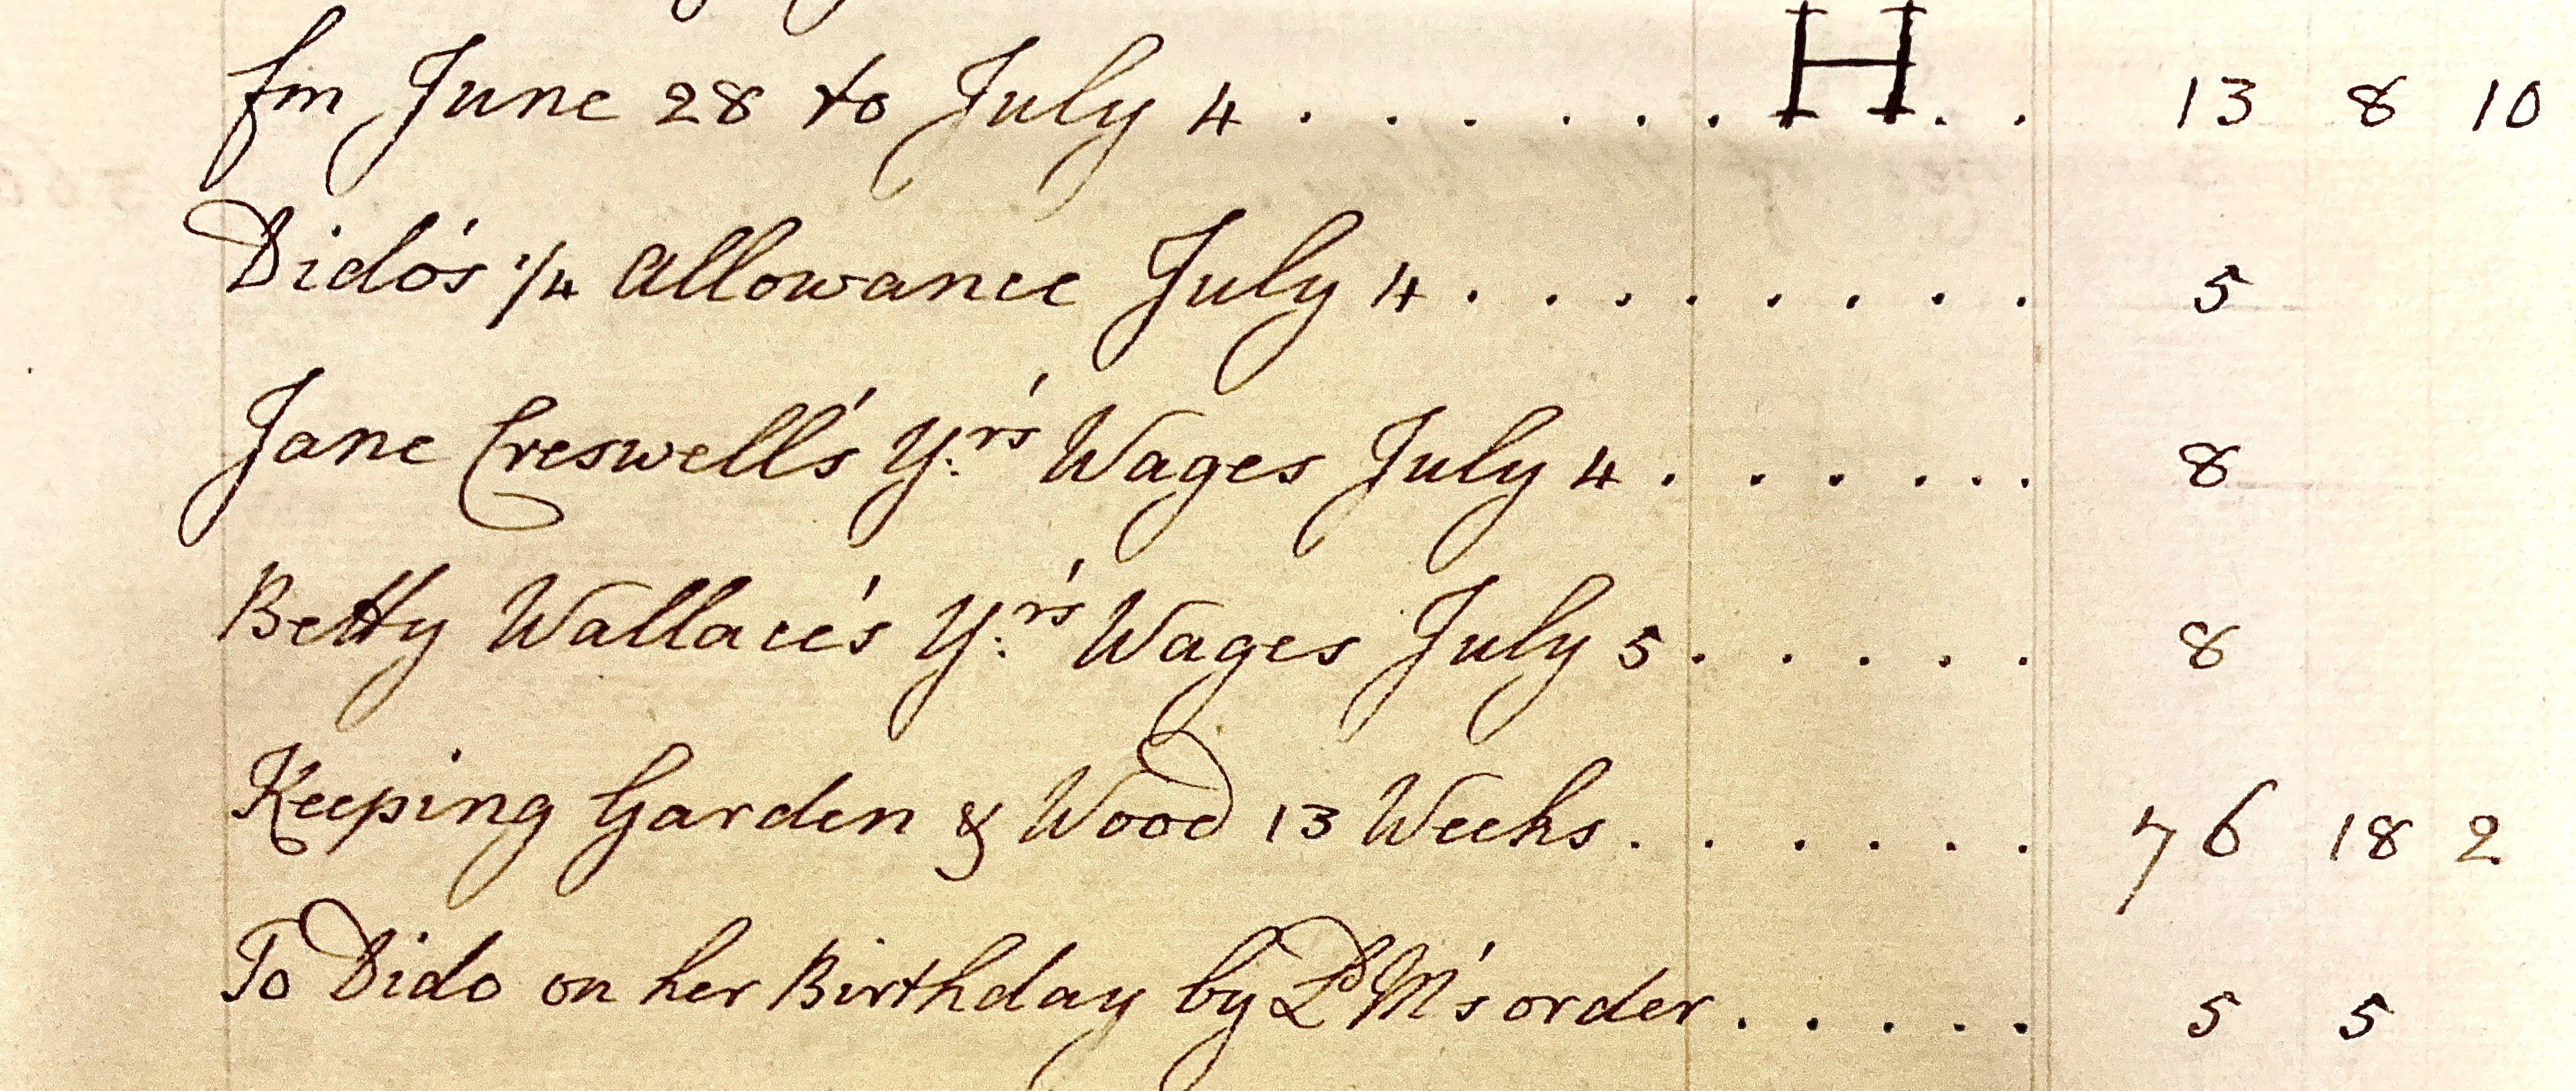 fm June 28 to July 4 . . . . . . . H . . 13 8 10
Dido's 1/4 Allowance July 4 . . . . . . . . 5
Jane Creswell's Y.rs' Wages July 4 . . . . . . 8
Betty Wallace's Y.rs' Wages July 5 . . . . . 8
Keeping Garden & Wood 13 Weeks . . . . . . 76 18 2
To Dido on her Birthday by Ld M's order . . . . . 5 5